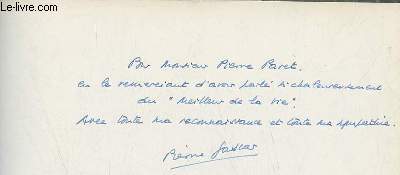 Le-livre.com
Pour Monsieur Pierre Paret.
en le remerciant d'avoir parlé si chaleureusement
du "Meilleur de la vie".
Avec toute ma reconnaissance et toute ma sympathie.
Pierre Gascar